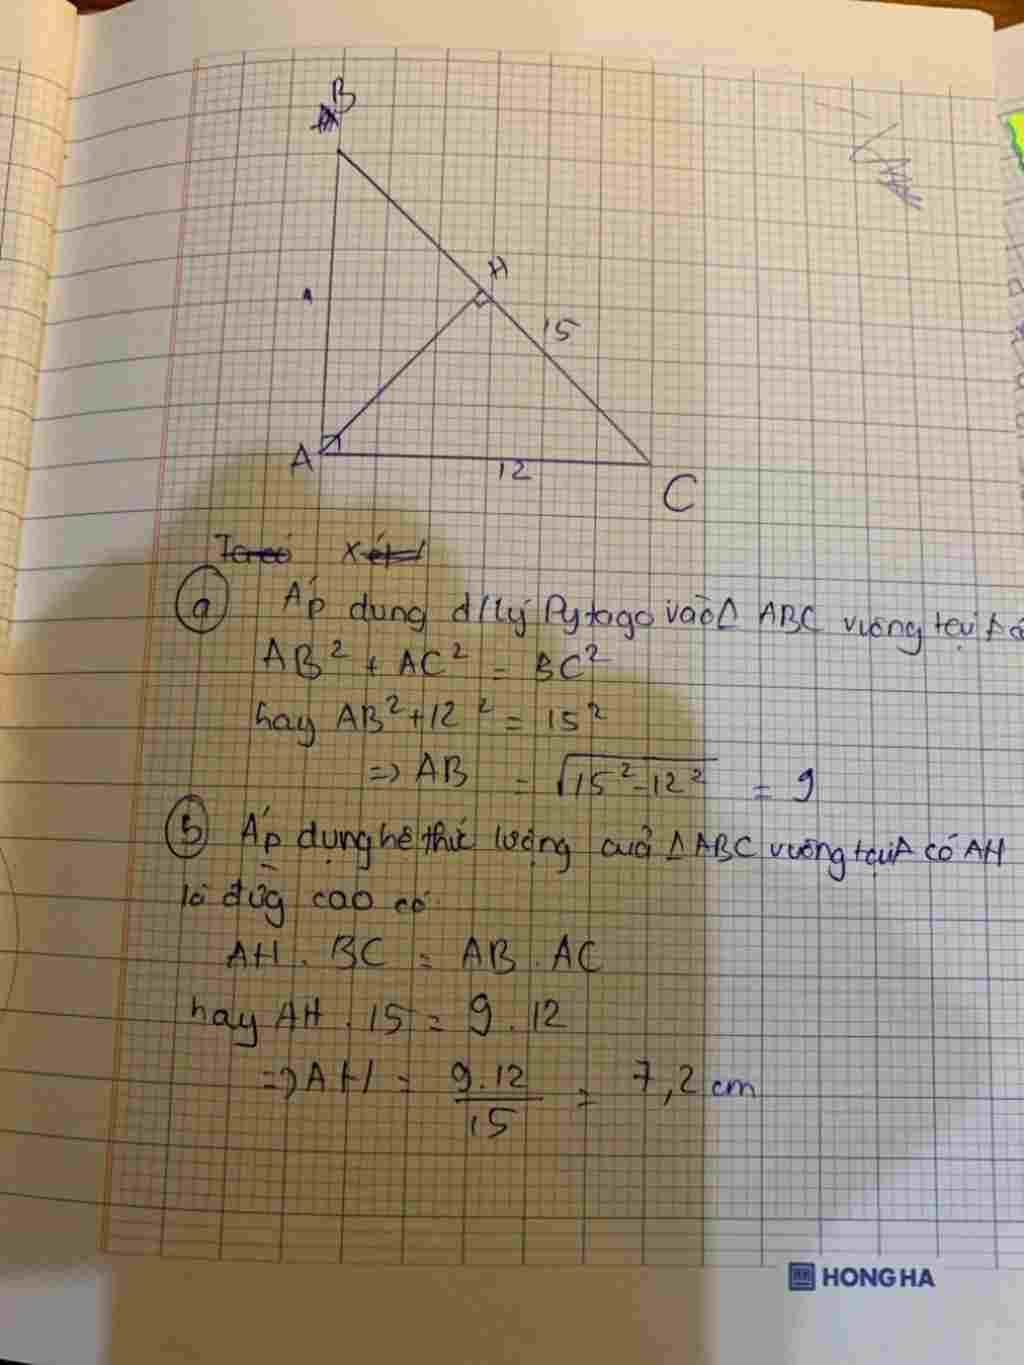 B
H
15
A
12
C
a Áp dụng đ/lý Pytago vào Δ ABC vuông tại A
AB² + AC² = BC²
hay AB² + 12² = 15²
=> AB = √15² - 12² = 9
b Áp dụng hê thức lượng cuả Δ ABC vuông tại A có AH
là đừg cao có
AH . BC = AB . AC
hay AH . 15 = 9 . 12
=> AH = 9.12 / 15 = 7,2 cm
HONG HA